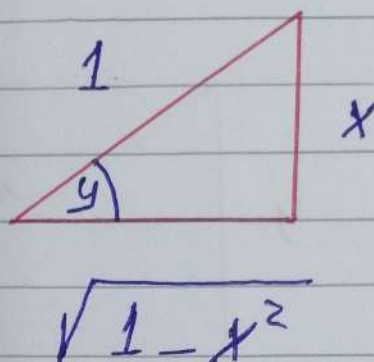 1
x
y
√(1 - x²)